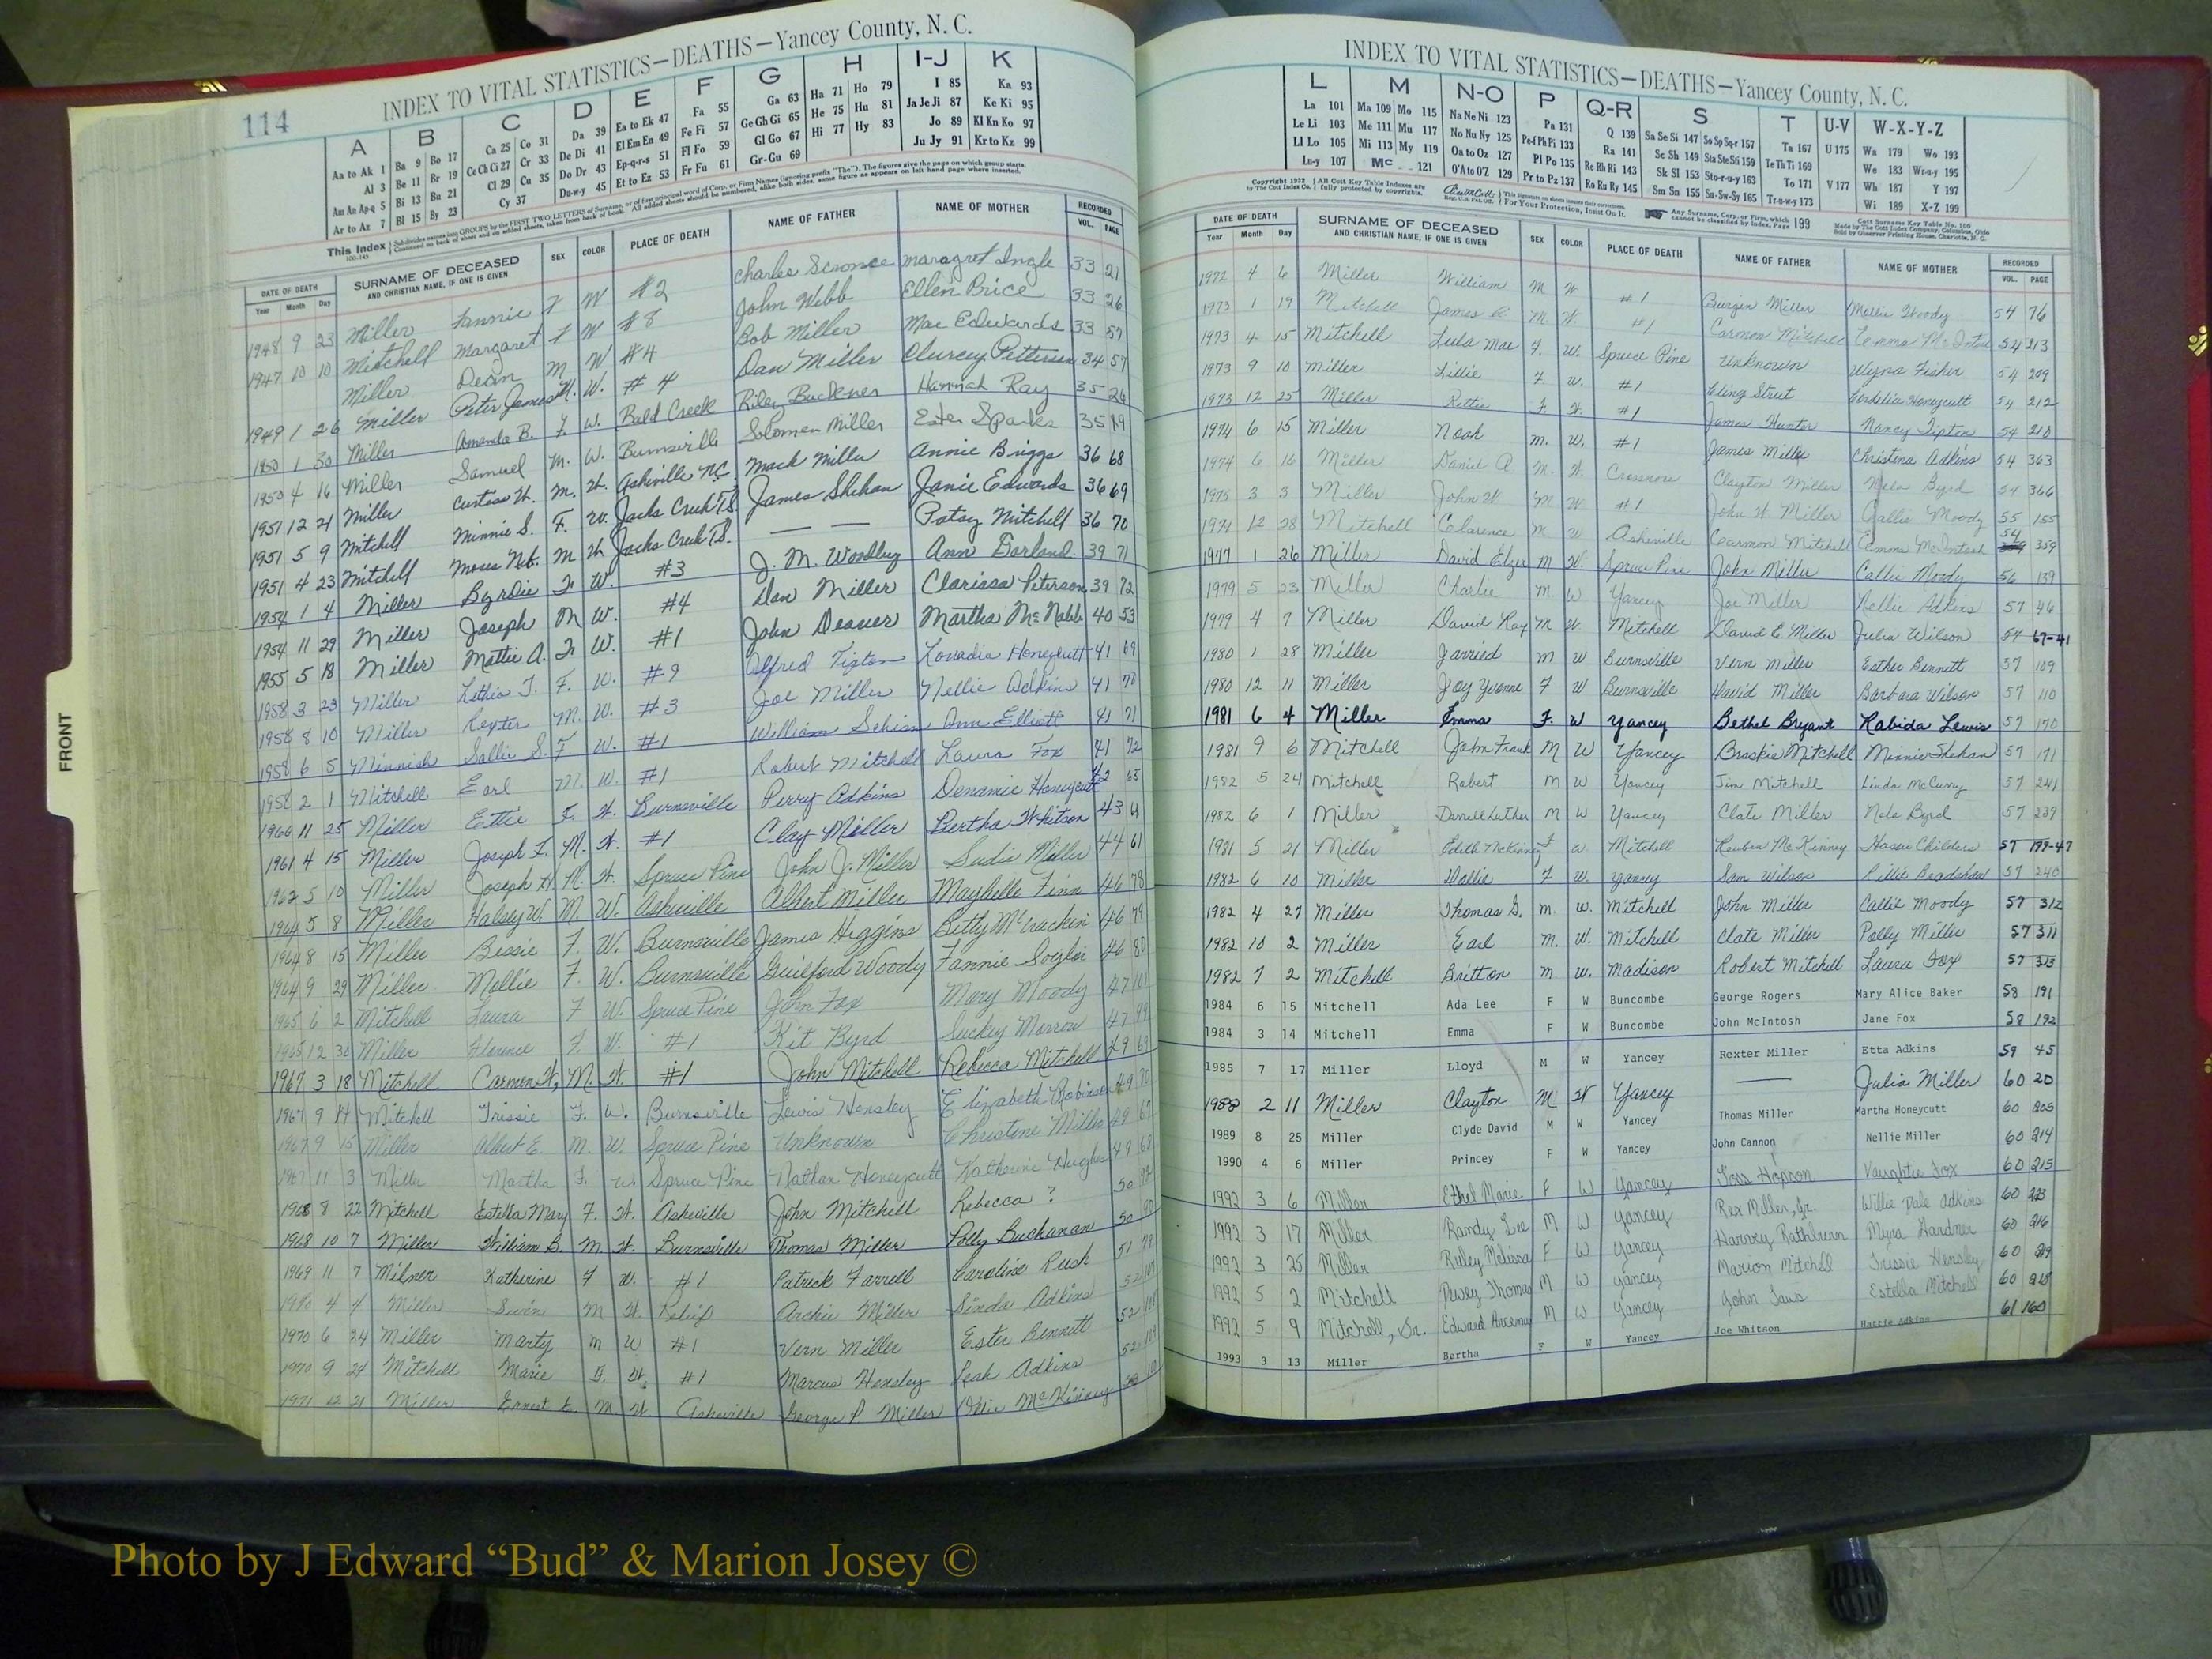 114
INDEX TO VITAL STATISTICS—DEATHS—Yancey County, N. C.
A B C D E F G H I-J K
Aa to Ak 1 Ba 9 Bo 17 Ca 25 Co 31 Da 39 Ea to Ek 47 Fa 55 Ga 63 Ha 71 Ho 79 I 85 Ka 93
Al 3 Be 11 Br 19 Ce Ch Ci 27 Cr 33 De Di 41 El Em En 49 Fe Fi 57 Ge Gh Gi 65 He 75 Hu 81 Ja Je Ji 87 Ke Ki 95
Am An Ap-q 5 Bi 13 Bu 21 Cl 29 Cu 35 Do Dr 43 Ep-q-r-s 51 Fl Fo 59 Gl Go 67 Hi 77 Hy 83 Jo 89 Kl Kn Ko 97
Ar to Az 7 Bl 15 By 23 Cy 37 Du-w-y 45 Et to Ez 53 Fr Fu 61 Gr-Gu 69 Ju Jy 91 Kr to Kz 99
This Index
DATE OF DEATH SURNAME OF DECEASED SEX COLOR PLACE OF DEATH NAME OF FATHER NAME OF MOTHER RECORDED
Year Month Day AND CHRISTIAN NAME, IF ONE IS GIVEN VOL. PAGE
1948 9 23 Miller Fannie F W #2 Charles Scronce Maragret Ingle 33 21
1947 10 10 Mitchell Margaret F W #8 John Webb Ellen Price 33 26
Miller Dean M W #4 Bob Miller Mae Edwards 33 57
1949 1 26 Miller Peter James M. W. #4 Dan Miller 34 57
1950 1 30 Miller Amanda B. F. W. Bald Creek Riley Buckner Hannah Ray 35 26
1950 4 16 Miller Samuel M. W. Burnsville Solomen Miller Ester Sparks 35
1951 12 21 Miller Curtiss W. M. W. Asheville NC. Mack Miller Annie Briggs 36 68
1951 5 9 Mitchell Minnie S. F. W. Jacks Creek TS. James Shehan Janie Edwards 36 69
1951 4 23 Mitchell Moses M W Jacks Creek TS. — — Patsy Mitchell 36 70
1954 1 4 Miller Byrdie F W. #3 J. M. Woodby Ann Garland 39 71
1954 11 29 Miller Joseph M W. #4 Dan Miller Clarissa Peterson 39 72
1955 5 18 Miller Mattie A. F W. #1 John Deaver Martha McNabb 40 53
1958 3 23 Miller Lethia T. F. W. #9 Alfred Tipton Honeycutt 41 69
1958 8 10 Miller Rexter M. W. #3 Joe Miller Nellie Adkins 41 70
1958 6 5 Minnish Sallie S. F W. #1 William Ann Elliott 41 71
1958 2 1 Mitchell Earl M. W. #1 Robert Mitchell Laura Fox 41 72
1960 11 25 Miller Ettie F. W. Burnsville Perry Adkins Honeycutt 42 65
1961 4 15 Miller Joseph F. M. W. #1 Clay Miller Bertha Whitson 43 64
1962 5 10 Miller Joseph H. M. W. Spruce Pine John J. Miller Sudie Miller 44 61
1964 5 8 Miller Halsey W. M. W. Asheville Albert Miller Maybelle Finn 46 78
1964 8 15 Miller Bessie F. W. Burnsville James Higgins Betty McCrackin 46 79
1964 9 29 Miller Mollie F. W. Burnsville Guilford Woody Fannie 46 80
1965 6 2 Mitchell Laura F W. Spruce Pine John Fox Mary Moody 47 101
1965 12 30 Miller Florence F. W. #1 Kit Byrd Suckey Morrow 47 99
1967 3 18 Mitchell Carmon W. M. W. #1 John Mitchell Rebecca Mitchell 49 69
1967 9 14 Mitchell Trissie F. W. Burnsville Lewis Hensley Elizabeth Robinson 49 70
1967 9 15 Miller Albert E. M. W. Spruce Pine Unknown Christine Miller 49 67
1967 11 3 Miller Martha F. W. Spruce Pine Nathan Honeycutt Katherine Hughes 49 68
1968 8 22 Mitchell Estella Mary F. W. Asheville John Mitchell Rebecca ? 50
1968 10 7 Miller William B. M W. Burnsville Thomas Miller Polly Buchanan 50
1969 11 7 Milner Katherine F W. #1 Patrick Farrell Caroline Rush 51 78
4 4 Miller M W. Archie Miller Adkins 52
1970 6 24 Miller Marty M W #1 Vern Miller Ester Bennett 52
1970 9 24 Mitchell Marie F. W. #1 Marcus Hensley Leah Adkins 52
1971 12 21 Miller Ernest E. M. W. Asheville George P Miller Ollie McKinney
INDEX TO VITAL STATISTICS—DEATHS—Yancey County, N. C.
L M N-O P Q-R S T U-V W-X-Y-Z
La 101 Ma 109 Mo 115 Na Ne Ni 123 Pa 131 Q 139 Sa Se Si 147 So Sp Sq-r 157 Ta 167 U 175 Wa 179 Wo 193
Le Li 103 Me 111 Mu 117 No Nu Ny 125 Pe-f Ph Pi 133 Ra 141 Sc Sh 149 Sta Ste Sti 159 Te Th Ti 169 We 183 Wr-u-y 195
Ll Lo 105 Mi 113 My 119 Oa to Oz 127 Pl Po 135 Re Rh Ri 143 Sk Sl 153 Sto-r-u-y 163 To 171 V 177 Wh 187 Y 197
Lu-y 107 Mc 121 O'A to O'Z 129 Pr to Pz 137 Ro Ru Ry 145 Sm Sn 155 Su-Sw-Sy 165 Tr-u-w-y 173 Wi 189 X-Z 199
DATE OF DEATH SURNAME OF DECEASED SEX COLOR PLACE OF DEATH NAME OF FATHER NAME OF MOTHER RECORDED
Year Month Day AND CHRISTIAN NAME, IF ONE IS GIVEN VOL. PAGE
1972 4 6 Miller William M W #1 Burger Miller Mollie Woody 54 76
1973 1 19 Mitchell James R M W. #1 Carmon Mitchell Emma McIntosh 54 213
1973 4 15 Mitchell Lula Mae F. W. Spruce Pine Unknown Fisher 54 209
1973 9 10 Miller Lillie F W. #1 Street Cordelia Honeycutt 54 212
1973 12 25 Miller F. W. #1 James Hunter Nancy Tipton 54 210
1974 6 15 Miller Noah M. W. #1 James Miller Christena Adkins 54 363
1974 6 16 Miller Daniel A M. W. Crossnore Clayton Miller Byrd 54 366
1975 3 3 Miller John W M W. #1 John W Miller Callie Moody 55 155
1974 12 28 Mitchell Clarence M W Asheville Carmon Mitchell Emma McIntosh 54 359
1977 1 26 Miller David M W. Spruce Pine John Miller Callie Moody 56 139
1979 5 23 Miller Charlie M W Yancey Joe Miller Nellie Adkins 57 46
1979 4 7 Miller David Ray M W Mitchell David E. Miller Julia Wilson 67-41
1980 1 28 Miller Jarried M W Burnsville Vern Miller Esther Bennett 57 109
1980 12 11 Miller Joy Yvonne F W Burnsville David Miller Barbara Wilson 57 110
1981 6 4 Miller Emma F. W Yancey Bethel Bryant Robida Lewis 57 170
1981 9 6 Mitchell John Frank M W Yancey Brookie Mitchell Minnie Shehan 57 171
1982 5 24 Mitchell Robert M W Yancey Jim Mitchell Linda McCurry 57 241
1982 6 1 Miller Darrell Luther M W Yancey Clate Miller Byrd 57 239
1981 5 21 Miller Edith McKinney F W Mitchell Reuben McKinney Hassie Childers 57 199-47
1982 6 10 Miller Dollie F W. Yancey Sam Wilson Bradshaw 57 240
1982 4 27 Miller Thomas G. M. W. Mitchell John Miller Callie Moody 57 312
1982 10 2 Miller Earl M. W. Mitchell Clate Miller Polly Miller 57 311
1982 7 2 Mitchell Britton M W. Madison Robert Mitchell Laura Fox 57 313
1984 6 15 Mitchell Ada Lee F W Buncombe George Rogers Mary Alice Baker 58 191
1984 3 14 Mitchell Emma F W Buncombe John McIntosh Jane Fox 58 192
1985 7 17 Miller Lloyd M W Yancey Rexter Miller Etta Adkins 59 45
1988 2 11 Miller Clayton M W Yancey — Julia Miller 60 20
1989 8 25 Miller Clyde David M W Yancey Thomas Miller Martha Honeycutt 60 205
1990 4 6 Miller Princey F W Yancey John Cannon Nellie Miller 60 214
1992 3 6 Miller Ethel Marie F W Yancey Hopson Vaughtie Fox 60 215
1992 3 17 Miller Randy Lee M W Yancey Rex Miller, Jr. Willie Dale Adkins 60 223
1992 3 25 Miller Ruley Melissa F W Yancey Harvey Rathburn Myra Gardner 60 216
1992 5 2 Mitchell Dewey Thomas M W Yancey Marion Mitchell Trissie Hensley 60 219
1992 5 9 Mitchell, Sr. Edward M W Yancey John Laws Estella Mitchell 60 218
1993 3 13 Miller Bertha F W Yancey Joe Whitson Hattie Adkins 61 160
FRONT
Photo by J Edward “Bud” & Marion Josey ©